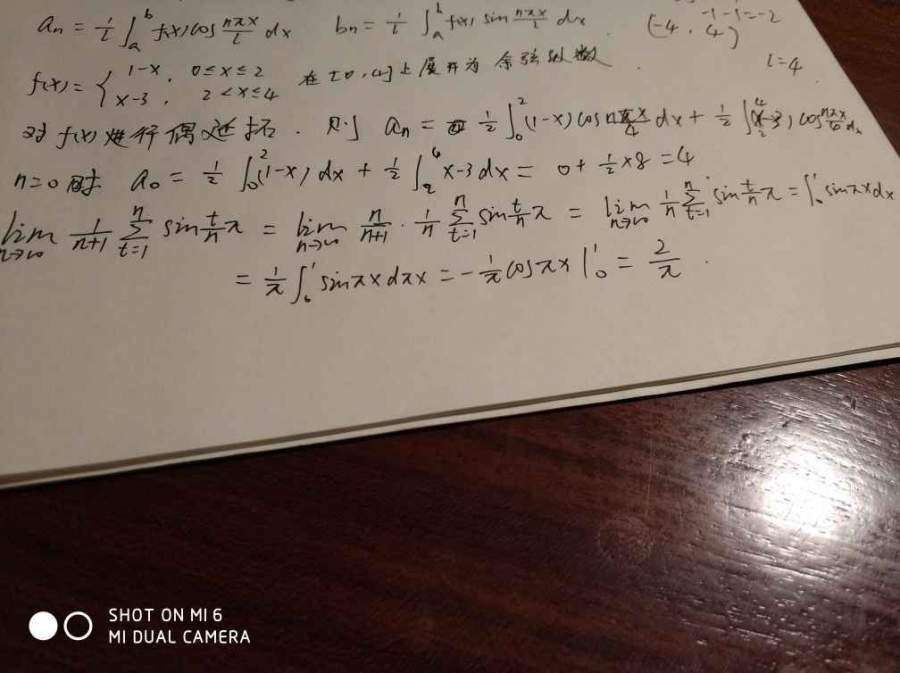 aₙ = 1/l ∫ₐᵇ f(x) cos nπx/l dx bₙ = 1/l ∫ₐᵇ f(x) sin nπx/l dx (-4, 4) -1-1=-2
f(x) = { 1-x, 0≤x≤2 x-3, 2<x≤4 在[0,4]上展开为余弦级数. l=4
对f(x)进行偶延拓. 则 aₙ = 1/2 ∫₀² (1-x) cos nπx/4 dx + 1/2 ∫₂⁴ (x-3) cos dx
n=0时 a₀ = 1/2 ∫₀² (1-x) dx + 1/2 ∫₂⁴ x-3 dx = 0 + 1/2 × 8 = 4
lim n→∞ 1/(n+1) Σ t=1 n sin t/n π = lim n→∞ n/(n+1) · 1/n Σ t=1 n sin t/n π = lim n→∞ 1/n Σ t=1 n sin t/n π = ∫₀¹ sin πx dx
= 1/π ∫₀¹ sin πx dπx = -1/π cos πx |₀¹ = 2/π.
SHOT ON MI 6
MI DUAL CAMERA